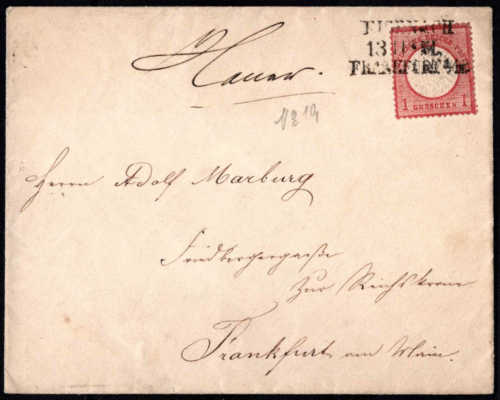 EISENACH
13
FRANKFURT a/M.
1 GROSCHEN 1
Hanau.
Herrn Adolf Marburg
Friedbergergaße
Zur Reichskrone
Frankfurt am Main.